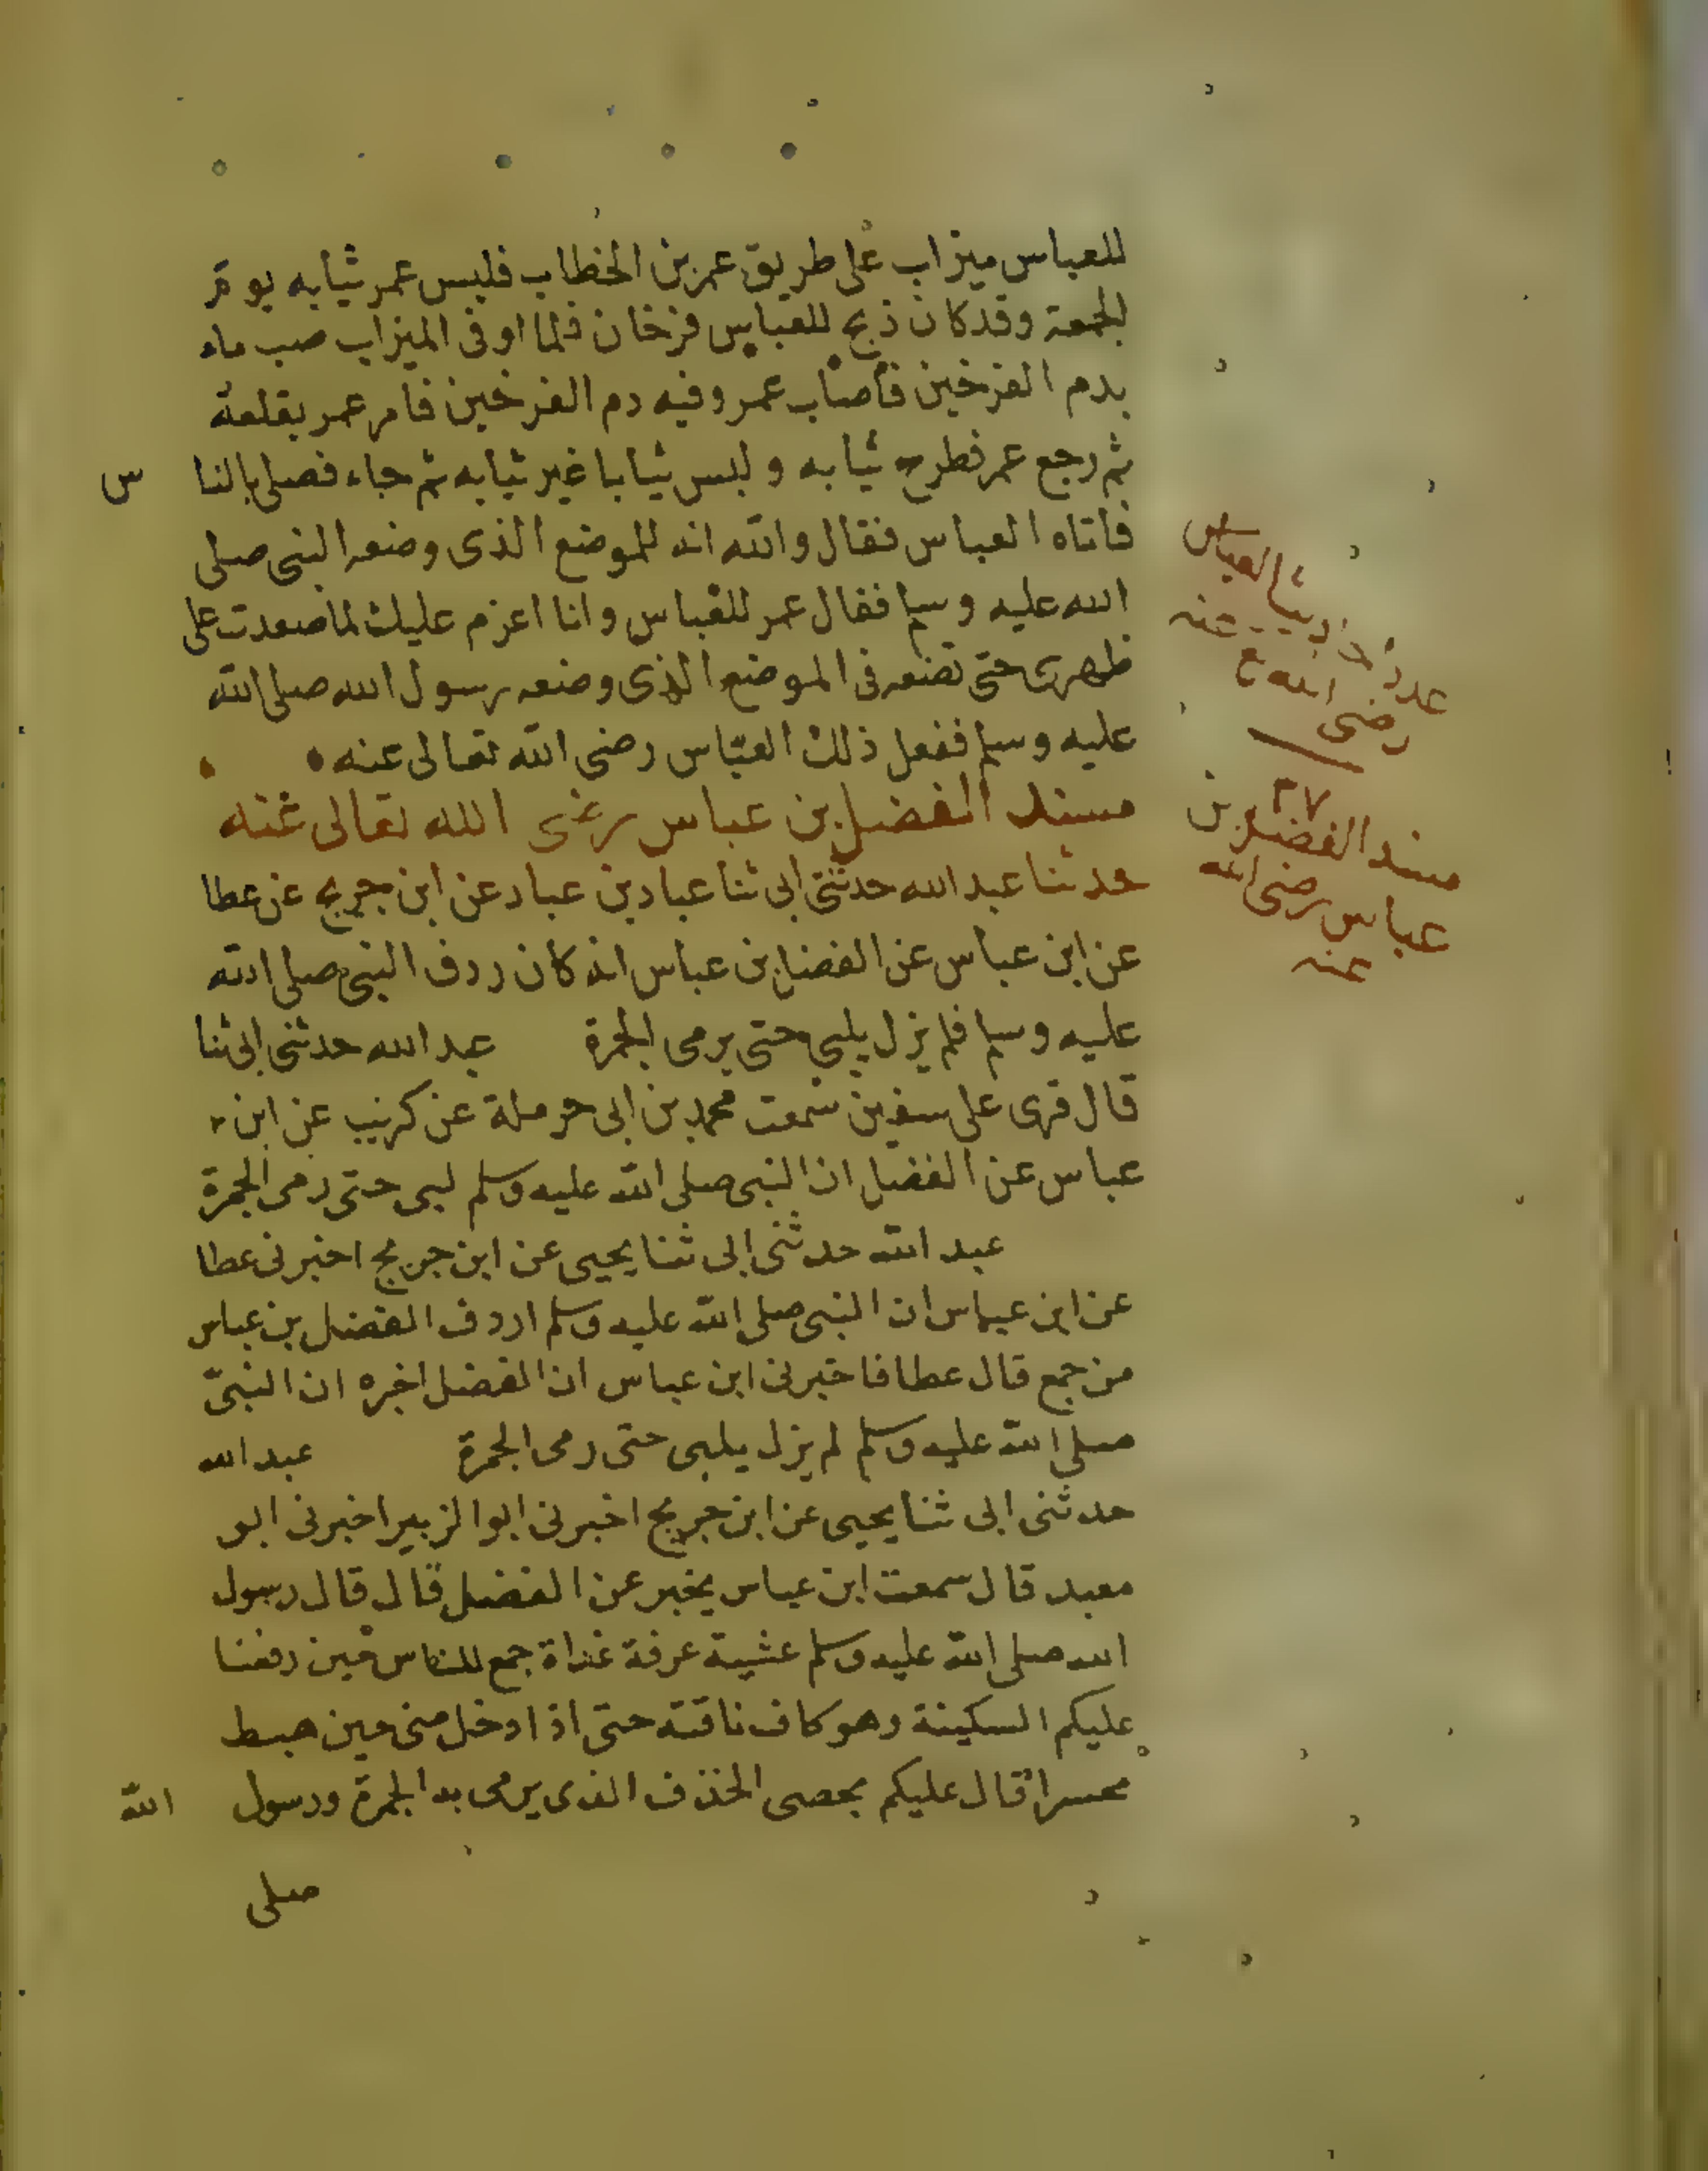 للعباس ميزاب على طريق عمر بن الخطاب فلبس عمر ثيابه يوم
الجمعة وقد كان ذبح للعباس فرخان فلما اوفى الميزاب صب ماء
بدم الفرخين فأصاب عمر وفيه دم الفرخين فامر عمر بقلعه
ثم رجع عمر فطرح ثيابه ولبس ثيابا غير ثيابه ثم جاء فصلى بالناس
فاتاه العباس فقال والله انه للموضع الذى وضعه النبى صلى
الله عليه وسلم فقال عمر للعباس وانا اعزم عليك لما صعدت على
ظهرى حتى تضعه فى الموضع الذى وضعه رسول الله صلى الله
عليه وسلم ففعل ذلك العباس رضى الله تعالى عنه
مسند الفضل بن عباس رضى الله تعالى عنه
حدثنا عبد الله حدثنى ابى ثنا عباد بن عباد عن ابن جريج عن عطا
عن ابن عباس عن الفضل بن عباس انه كان ردف النبى صلى الله
عليه وسلم فلم يزل يلبى حتى يرمى الجمرة عبد الله حدثنى ابى ثنا
قال قرى على سفين سمعت محمد بن ابى حرملة عن كريب عن ابن
عباس عن الفضل ان النبى صلى الله عليه وسلم لبى حتى رمى الجمرة
عبد الله حدثنى ابى ثنا يحيى عن ابن جريج اخبرنى عطا
عن ابن عباس ان النبى صلى الله عليه وسلم اردف الفضل بن عباس
من جمع قال عطا فاخبرنى ابن عباس ان الفضل اخبره ان النبى
صلى الله عليه وسلم لم يزل يلبى حتى رمى الجمرة عبد الله
حدثنى ابى ثنا يحيى عن ابن جريج اخبرنى ابو الزبير اخبرنى ابو
معبد قال سمعت ابن عباس يخبر عن الفضل قال قال رسول
الله صلى الله عليه وسلم عشية عرفة غداة جمع للناس حين دفعنا
عليكم السكينة وهو كاف ناقته حتى اذا دخل منى حين هبط
محسرا قال عليكم بحصى الخذف الذى يرمى به الجمرة ورسول الله
صلى
عدد احاديث العباس
رضى الله عنه
٢٧
مسند الفضل بن
عباس رضى الله
عنه